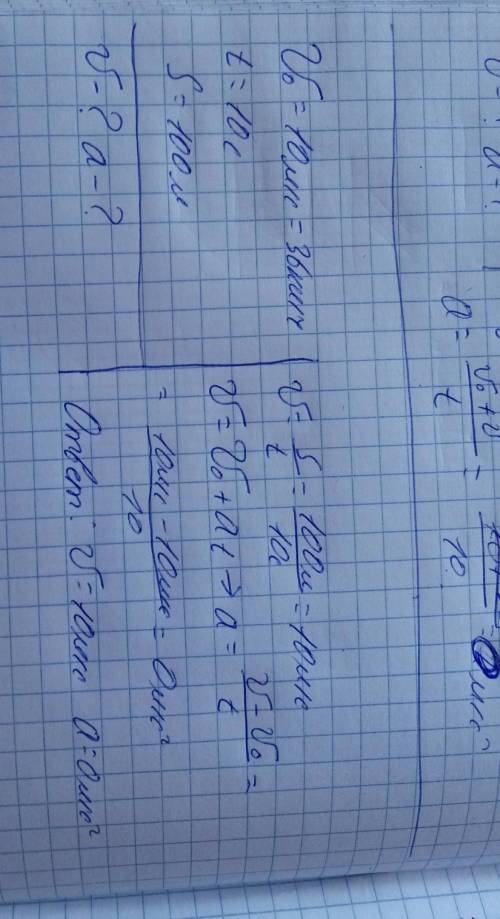 υ-? a-?
a = υ₀+υ / t = / 10 = 0 м/с²
υ₀ = 10м/с = 36км/ч
t = 10с
S = 100м
υ-? a-?
υ = S/t = 100м/10с = 10м/с
υ = υ₀ + at → a = υ-υ₀ / t =
= 10м/с - 10м/с / 10 = 0м/с²
Ответ: υ = 10м/с a = 0м/с²